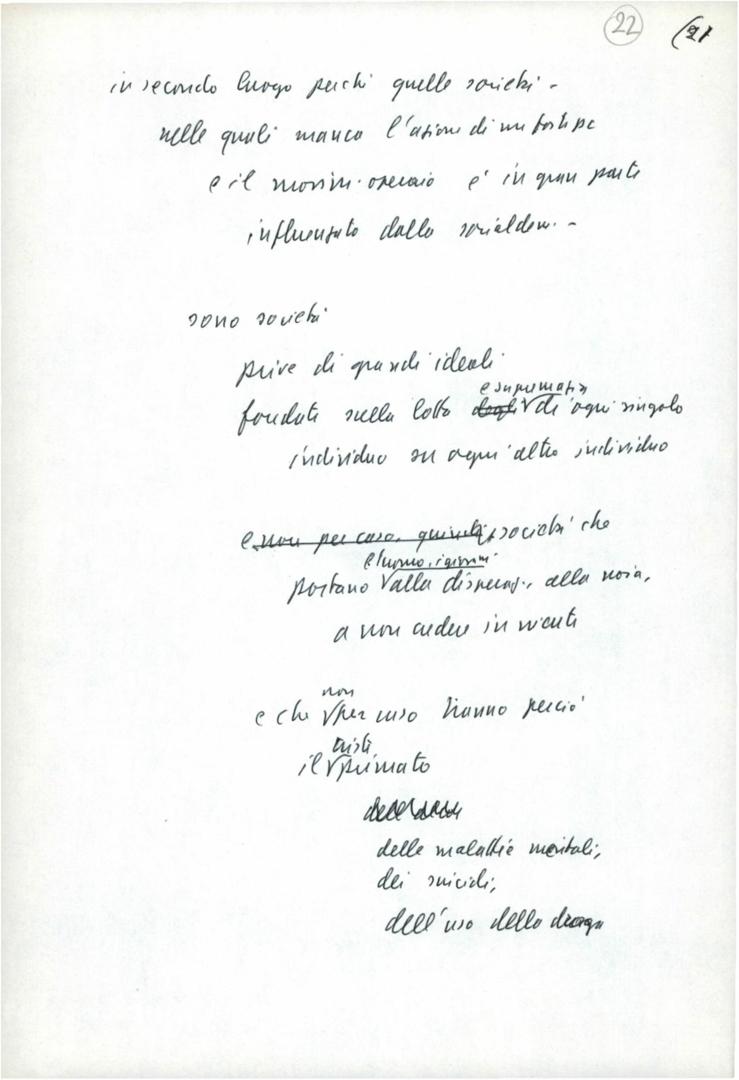 22 (21
in secondo luogo perché quelle società -
nelle quali manca l'azione di un forte pc
e il movim. operaio è in gran parte
influenzato dalla socialdem. -
sono società
prive di grandi ideali
e supremazia
fondate sulla lotta degli di ogni singolo
individuo su ogni altro individuo
e non per caso, quindi, società che
l'uomo, i giovani
portano alla disperaz., alla noia,
a non credere in niente
non
e che per caso hanno perciò
triste
il primato
delle malattie mentali,
dei suicidi,
dell'uso della droga